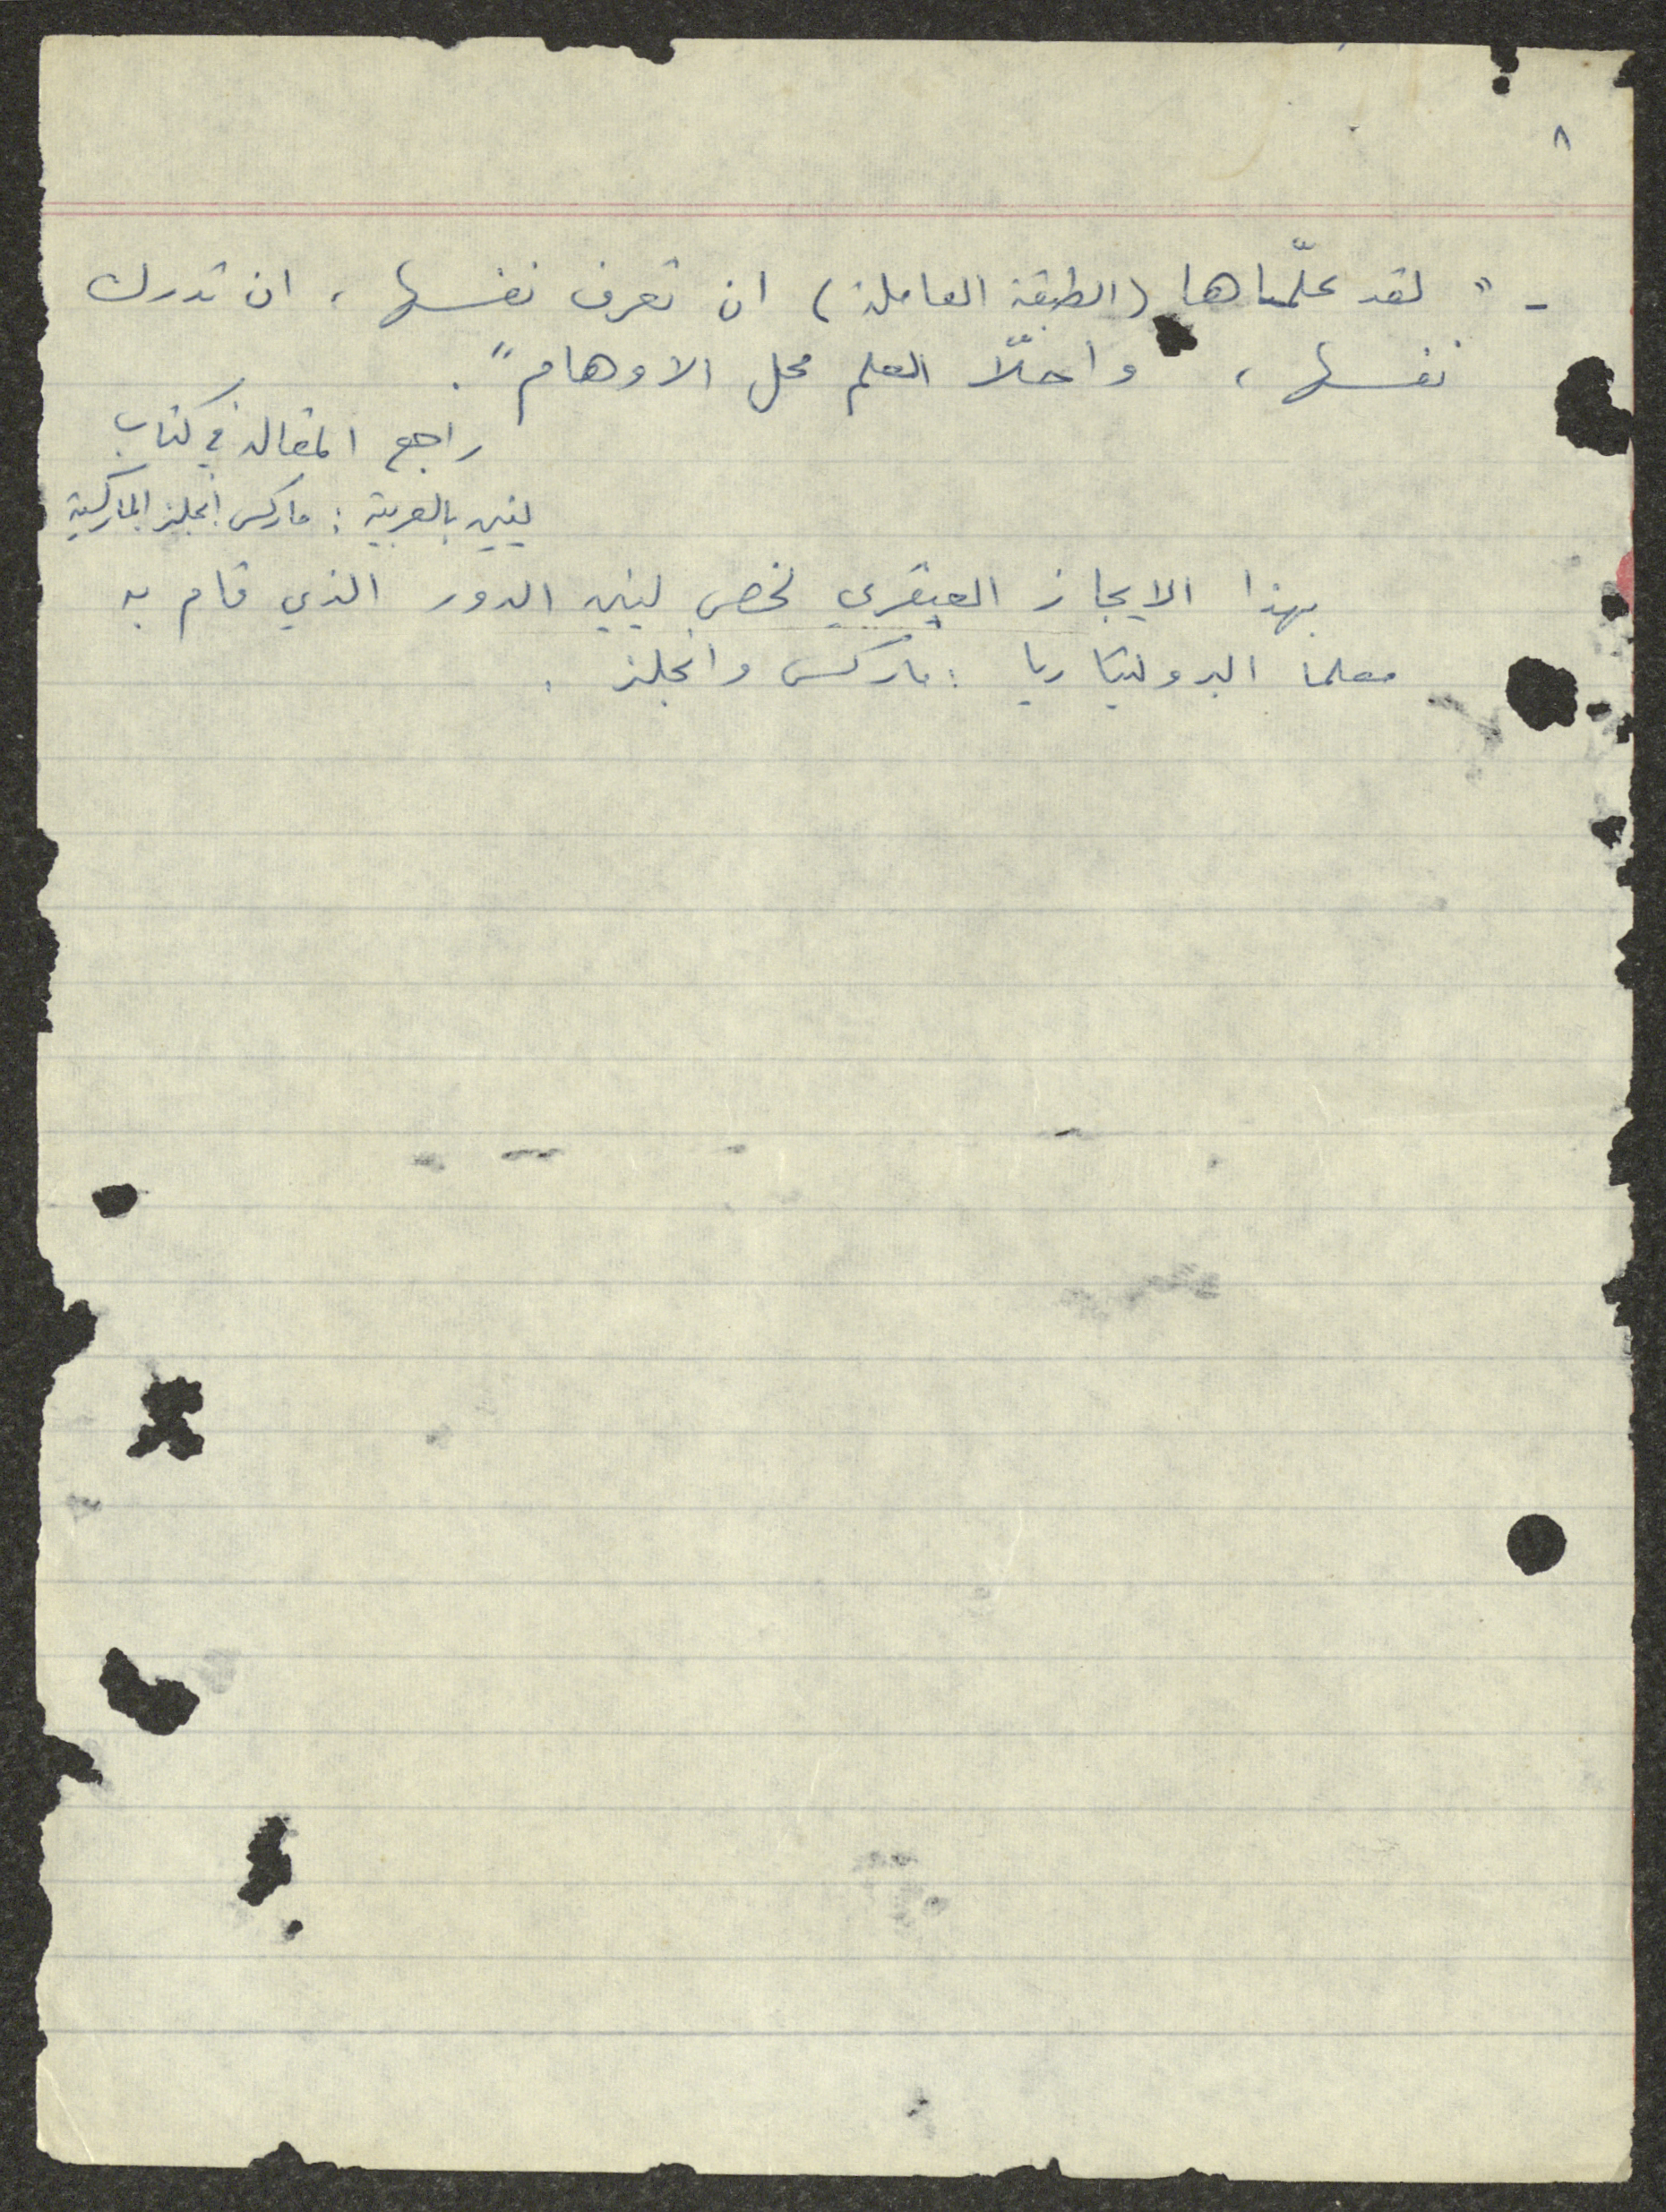 ٨
- " لقد علّماها (الطبقة العاملة) ان تعرف نفسها ، ان تدرك
نفسها ، واحلّا العلم محل الاوهام " .
راجع المقالة في كتاب
لينين بالعربية : ماركس انجلز الماركسية
بهذا الايجاز العبقري لخص لينين الدور الذي قام به
معلما البروليتاريا : ماركس وانجلز .